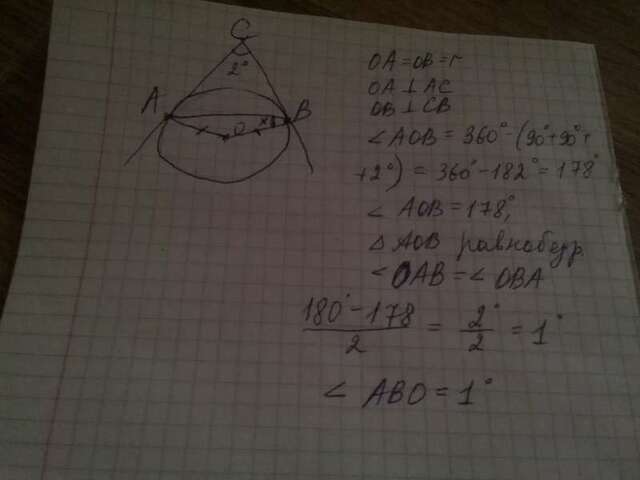 C
2°
A
O
x
B
OA = OB = r
OA ⊥ AC
OB ⊥ CB
∠AOB = 360° - (90° + 90° +
+ 2°) = 360° - 182° = 178°
∠ AOB = 178°,
△ AOB равнобедр.
∠ OAB = ∠ OBA
180° - 178 / 2 = 2° / 2 = 1°
∠ ABO = 1°